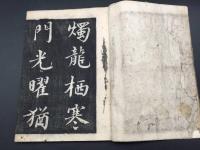 燭龍栖寒
門光曜猶